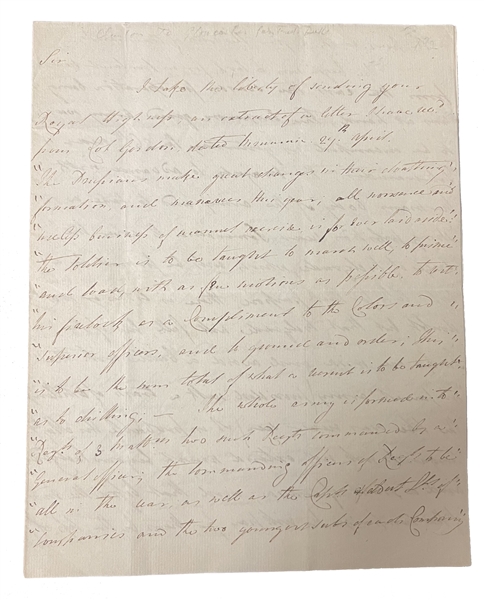 Sir
I take the liberty of sending you
Royal Highness an extract of a letter I have rec'd
from Col Gordon dated 29th April.
"The Prussians make great changes in their
"formation and maneuvres this year, all nonsence and
"useless business of manual exercise is for ever laid aside"
"the soldier is to be taught to march well, to prime"
"and load, with as few motions as possible, to
"his firelock as a Compliment to the Colors and "
"Superior officers, and to ground and order; this"
"is to be the sum total of what a recruit is to be taught"
"as to drilling; — The whole army is formed into
"Regts of 3 two such Regts commanded by a"
"General officer; the commanding officers of Regts to be
"all in the rear, as well as the Capts
"Companies and the two youngest subs of each Company